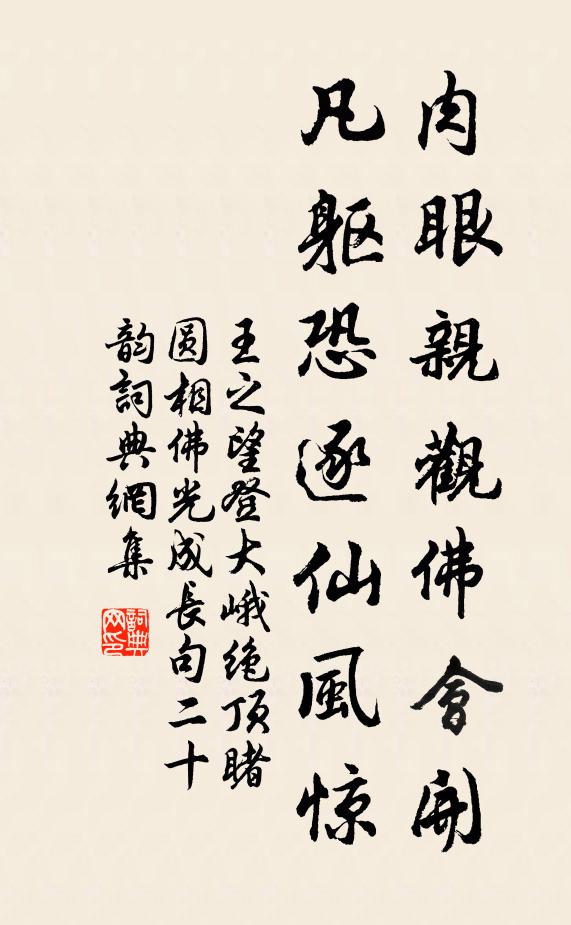 肉眼親觀佛會開
凡軀恐逐仙風惊
王之望登大峨绝顶睹
圆相佛光成長句二十
韵詞典網集
詞典网印